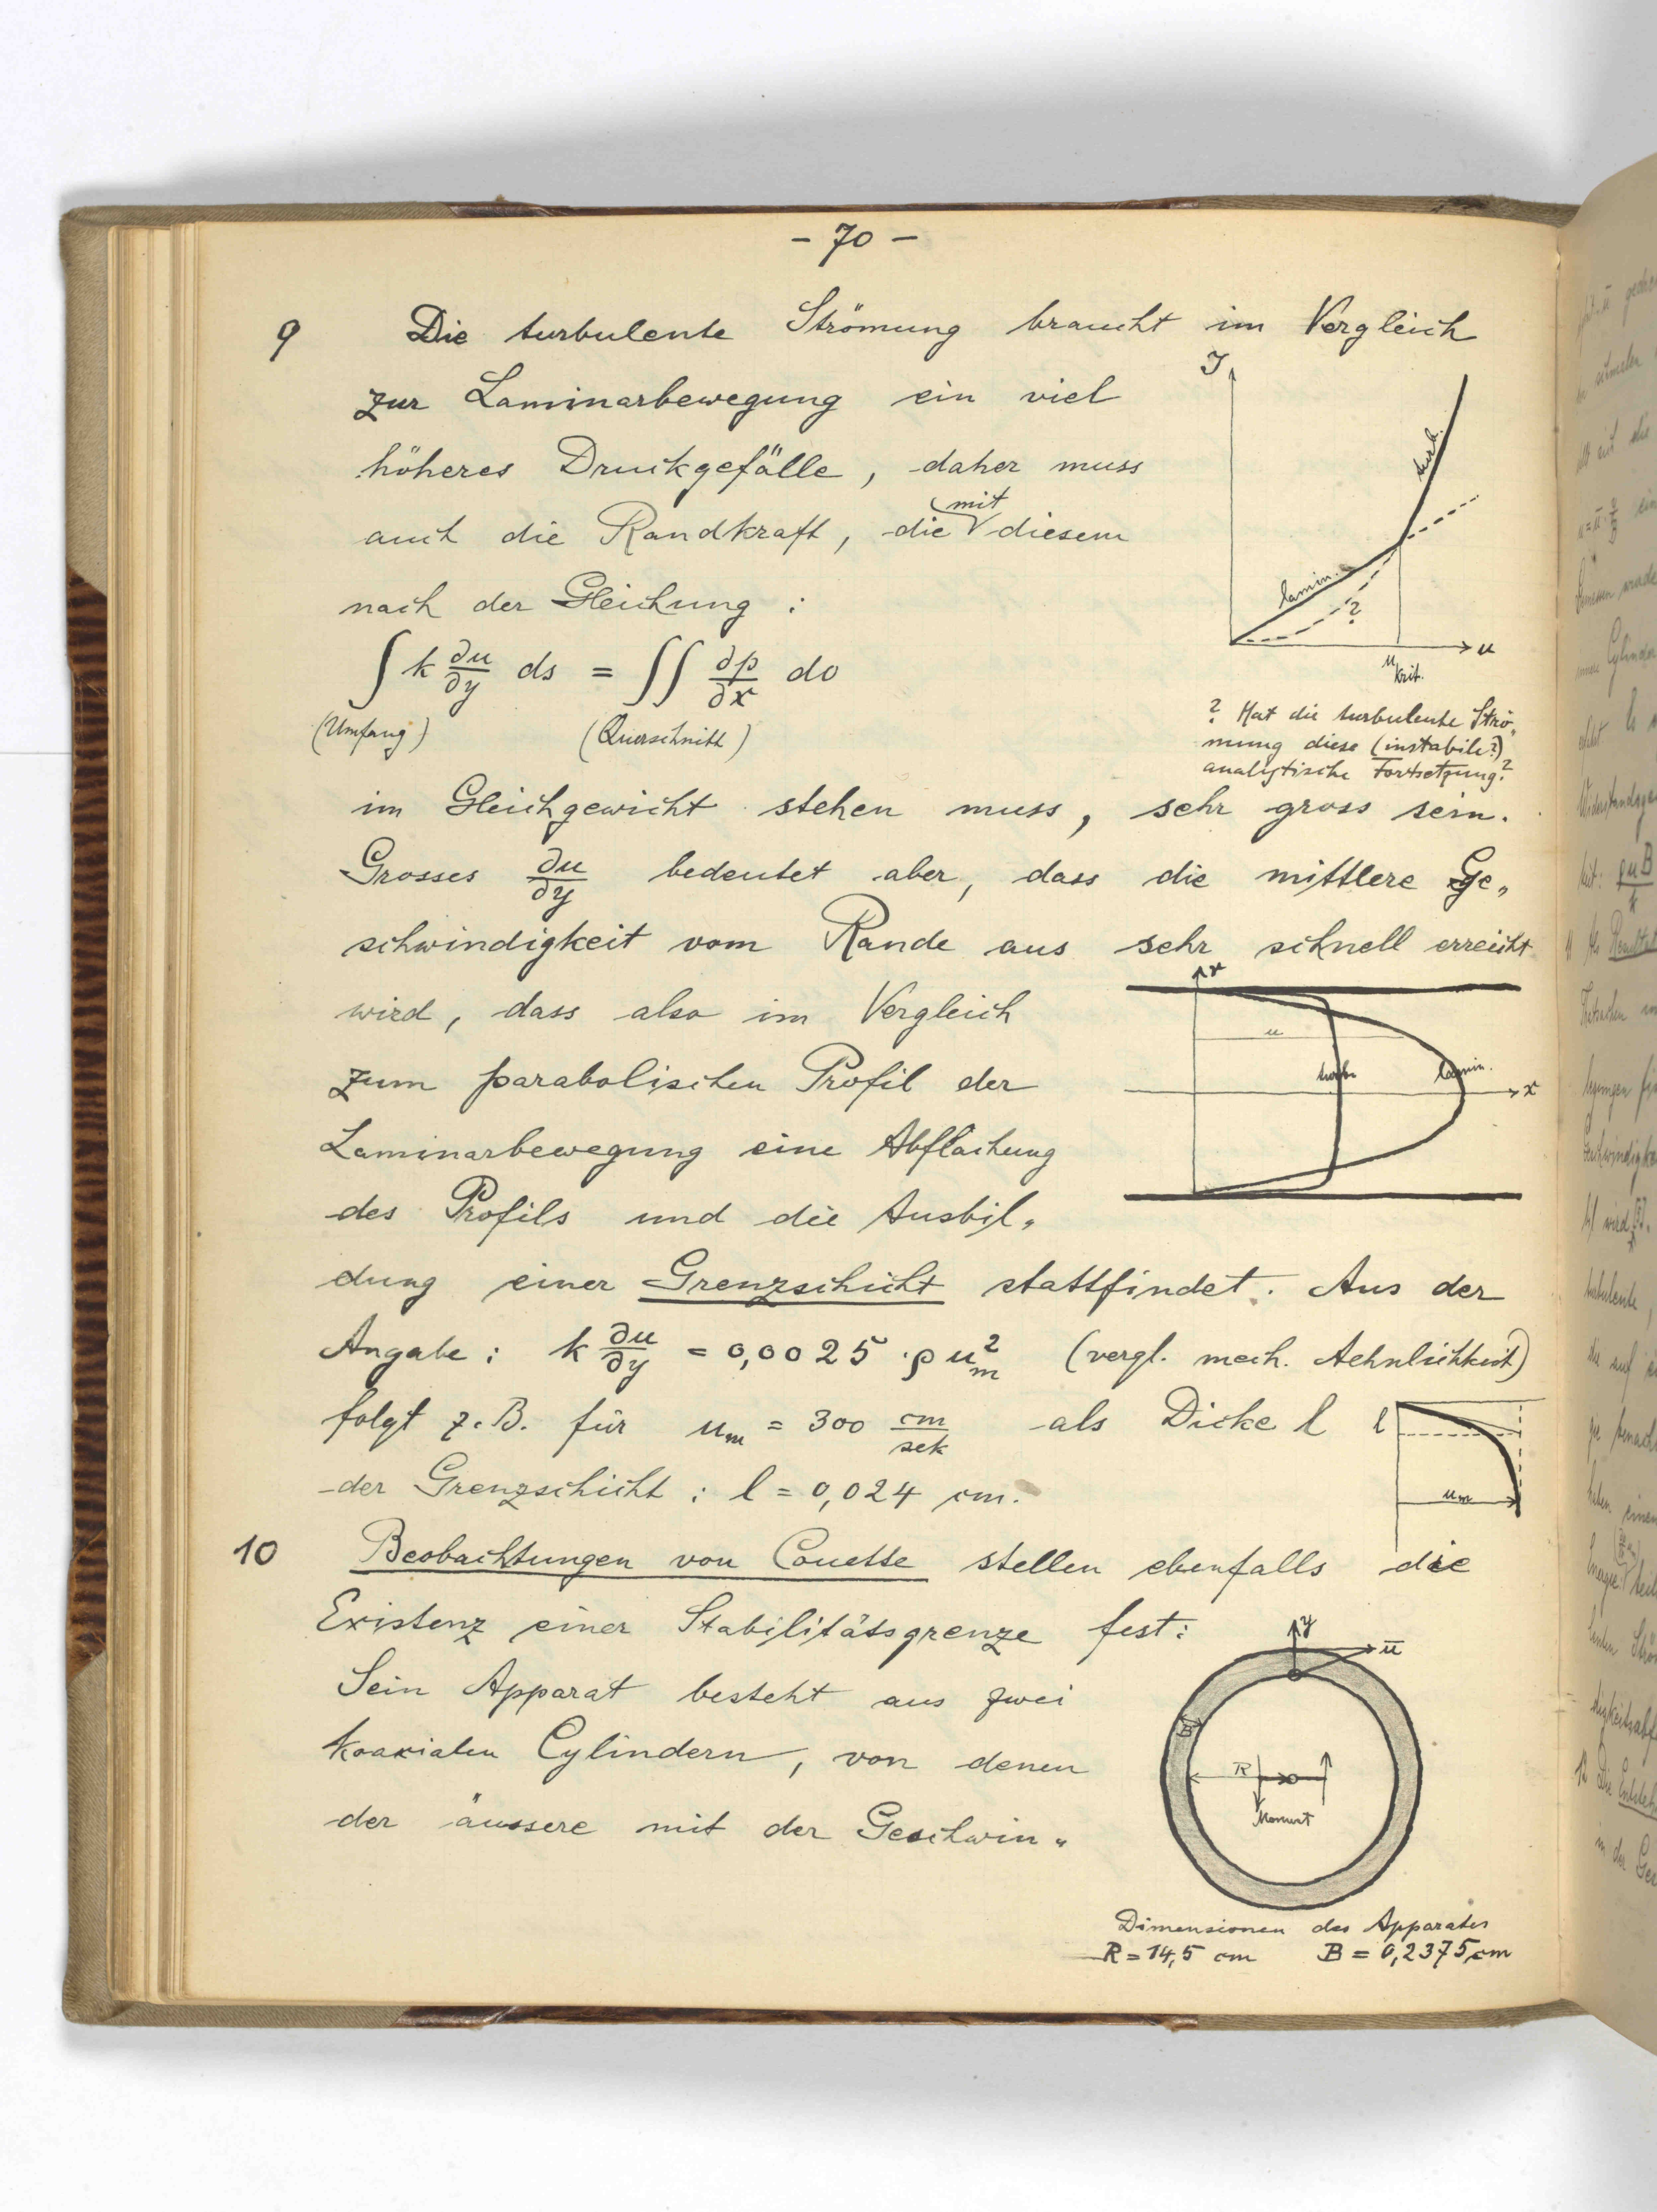 - 70 -
9 Die turbulente Strömung braucht im Vergleich
zur Laminarbewegung ein viel
höheres Druckgefälle, daher muss
mit
auch die Randkraft, die diesem
nach der Gleichung :
∫ k ∂u/∂y ds = ∫∫ ∂p/∂x do
(Umfang) (Querschnitt)
J
turb.
lamin.
?
u
u krit.
? Hat die turbulente Strö„
mung diese (instabile?)
analytische Fortsetzung?
im Gleichgewicht stehen muss, sehr gross sein.
Grosses ∂u/∂y bedeutet aber, dass die mittlere Ge„
schwindigkeit vom Rande aus sehr schnell erreicht
wird, dass also im Vergleich
zum parabolischen Profil der
Laminarbewegung eine Abflachung
des Profils und die Ausbil„
u
turb.
lamin.
x
dung einer Grenzschicht stattfindet. Aus der
Angabe : k ∂u/∂y = 0,0025 · ρ u_m^2 (vergl. mech. Aehnlichkeit)
folgt z. B. für u_m = 300 cm/sek als Dicke l
l
u_m
der Grenzschicht : l = 0,024 cm.
10 Beobachtungen von Couette stellen ebenfalls die
Existenz einer Stabilitätsgrenze fest:
Sein Apparat besteht aus zwei
koaxialen Cylindern, von denen
der äussere mit der Geschwin„
y
ū
B
R
Moment
Dimensionen des Apparates
R = 14,5 cm B = 0,2375 cm